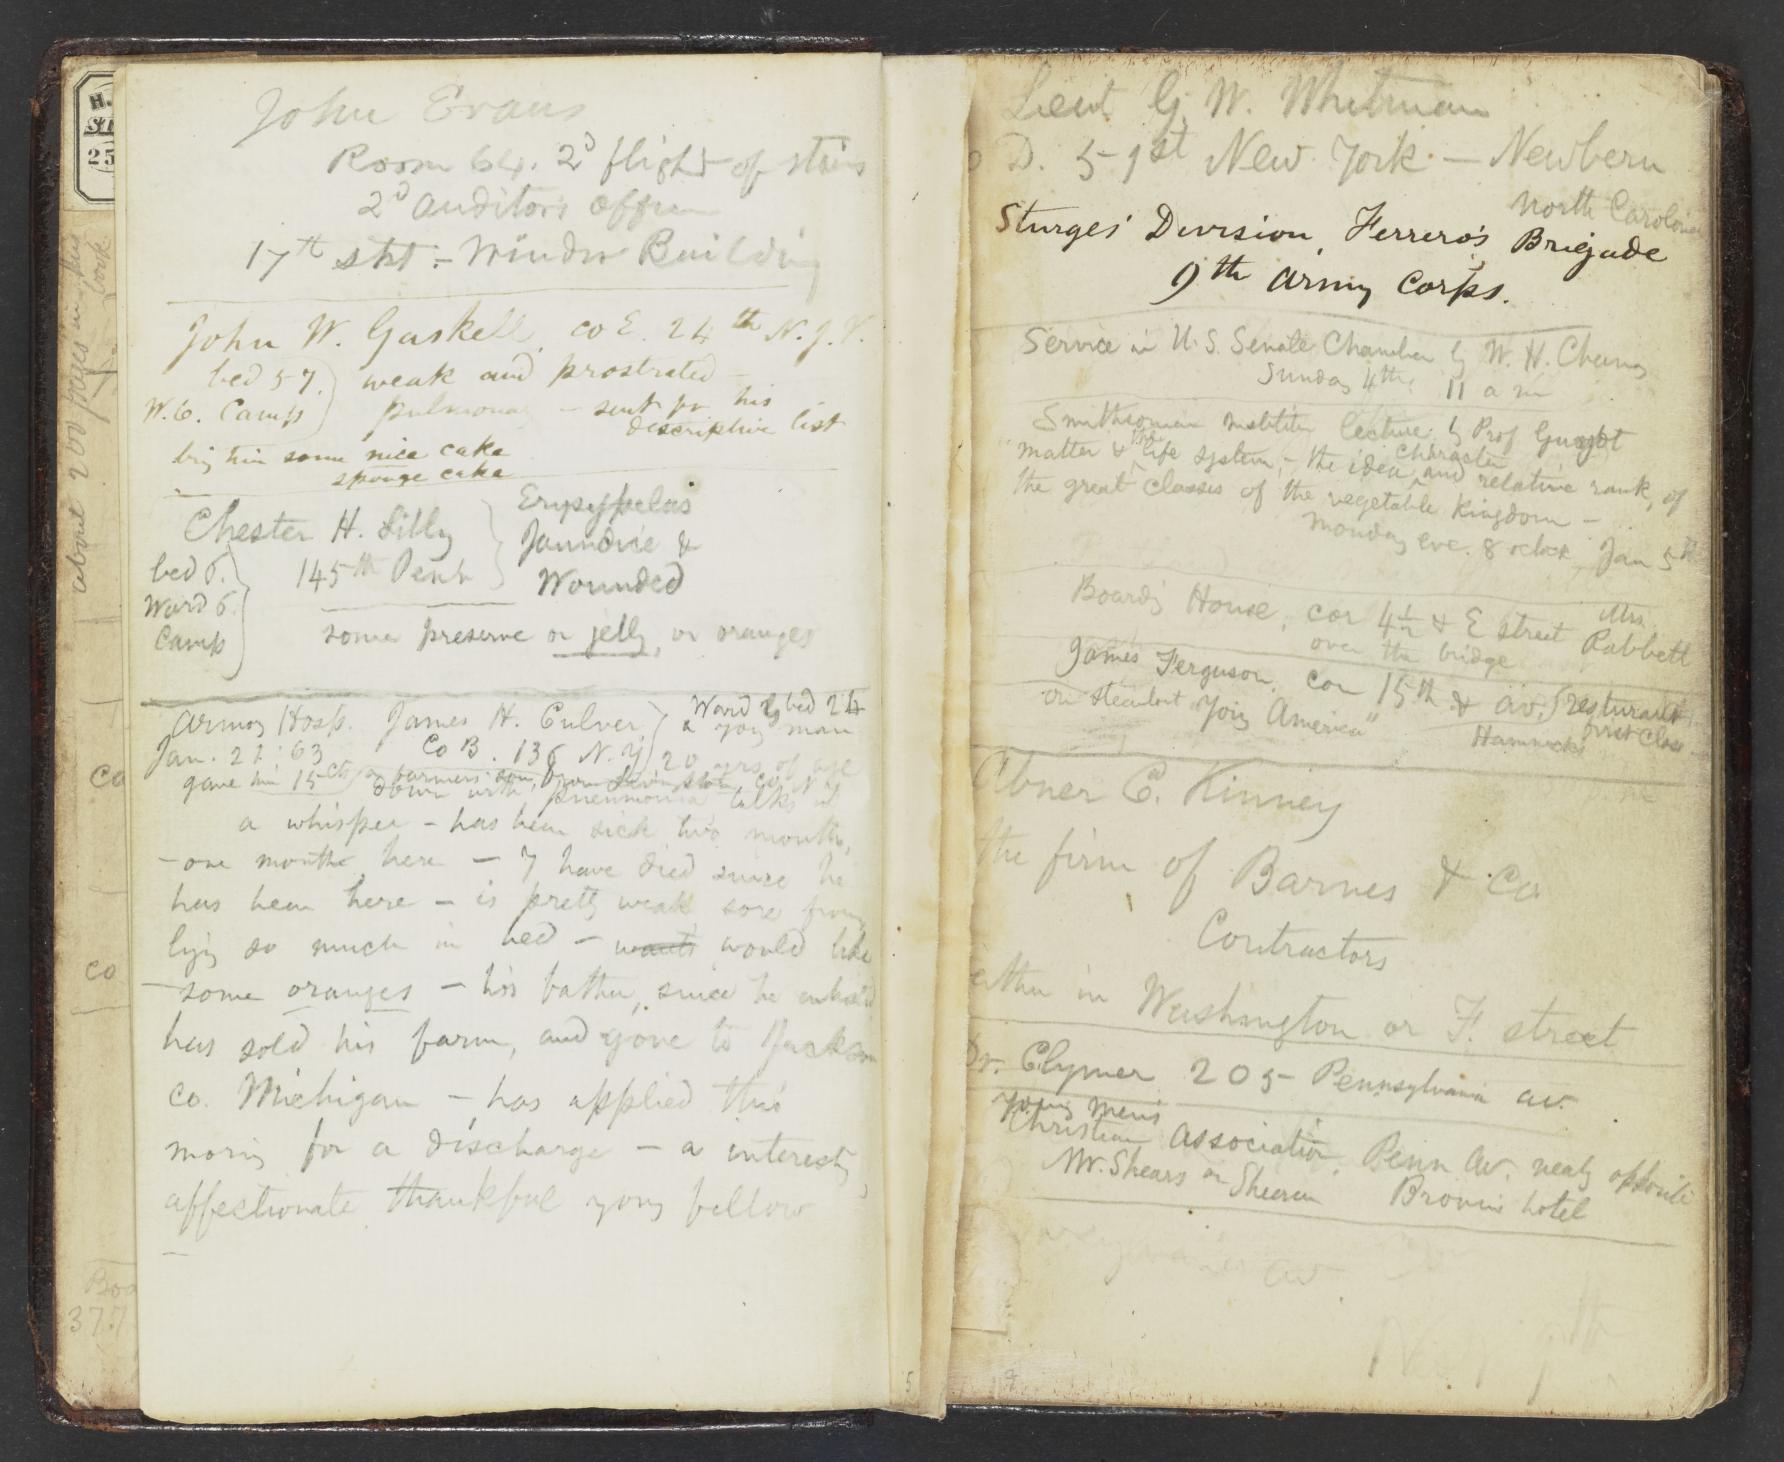 John Evans
Room 64. 2d flight of stairs
2d Auditor's office
17th st - Winder Building
John W. Gaskell, co E. 24th N.J.V.
bed 57. weak and prostrated -
W.6. Camp pulmonary - sent for his
descriptive list
bring him some nice cake
sponge cake
Chester H. Lilly
145th Penn
Erysypelas
Jaundice &
Wounded
bed 6.
Ward 6.
Camp
some preserve or jelly, or oranges
Armory Hosp. James H. Culver
Ward G bed 24
a young man
Jan. 21 '63 Co B. 136 N.Y. 20 yrs of age
gave him 15cts a farmers son, from Livingston co. N Y
down with pneumonia talks in
a whisper - has been sick two months,
- one month here - 7 have died since he
has been here - is pretty weak sore from
lying so much in bed - wants would like
some oranges - his father, since he enlisted
has sold his farm, and gone to Jackson
co. Michigan - has applied this
morning for a discharge - a interesting,
affectionate thankful young fellow
about 200 pages in this book
H.
25
Co
Co
Boo
377
5
Lieut G. W. Whitman
o D. 51st New York - Newbern
North Carolina
Sturges' Division, Ferrero's Brigade
9th Army Corps.
Service in U.S. Senate Chamber by W. H. Channing
Sunday 4th, 11 a m
Smithsonian Institution lecture by Prof Guyot
matter & the life system, - the idea character and relative rank, of
the great classes of the vegetable kingdom -
Monday eve. 8 o'clock Jan 5th
Boards House, cor 4½ & E street Mrs.
over the bridge Rabbett
James Ferguson, cor 15th & av. resturant
on steamboat "Young America" Hammack's first class
Abner C. Kinney
the firm of Barnes & Co
Contractors
either in Washington or F. street
Dr. Clymer 205 Pennsylvania av.
Young Men's
Christian Association, Penn Av. nearly opposite
Mr. Shears or Shearer Brown's hotel
av